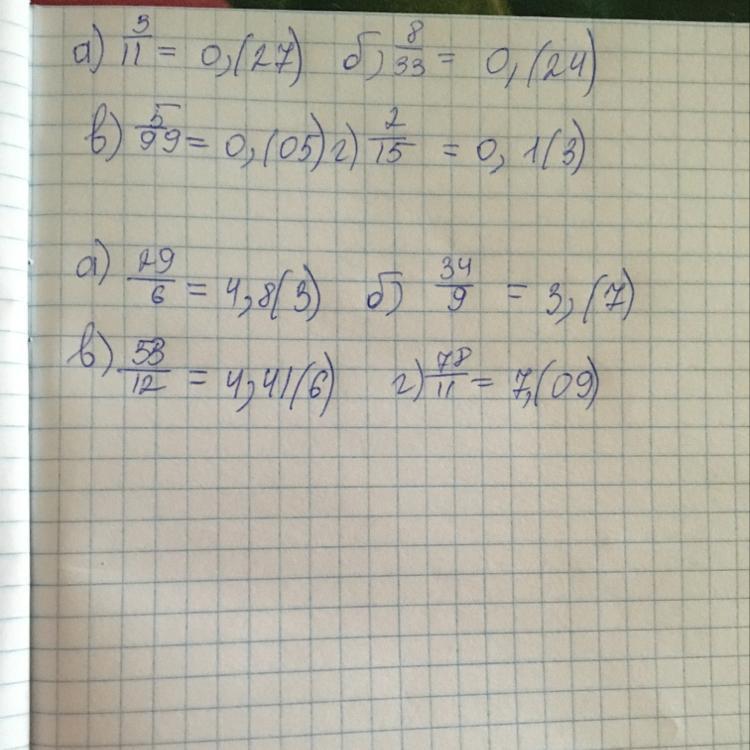 а) 3/11 = 0,(27) б) 8/33 = 0,(24)
в) 5/99 = 0,(05) г) 2/15 = 0,1(3)
а) 29/6 = 4,8(3) б) 34/9 = 3,(7)
в) 53/12 = 4,41(6) г) 78/11 = 7,(09)